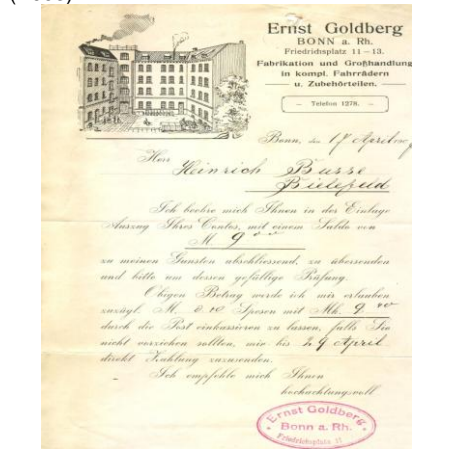 Ernst Goldberg
BONN a. Rh.
Friedrichsplatz 11–13.
Fabrikation und Großhandlung
in kompl. Fahrrädern
u. Zubehörteilen.
– Telefon 1278. –
Bonn, den 17 April
Herr
Heinrich Busse
Bielefeld
Ich beehre mich Ihnen in der Einlage
Auszug Ihres Contos, mit einem Saldo von
M. 9
zu meinen Gunsten abschliessend, zu übersenden
und bitte um dessen gefällige Prüfung.
Obigen Betrag werde ich mir erlauben
zuzügl. M. Spesen mit Mk. 9
durch die Post einkassieren zu lassen, falls Sie
nicht vorziehen sollten, mir bis 29 April
direkt Zahlung zuzusenden.
Ich empfehle mich Ihnen
hochachtungsvoll
Ernst Goldberg
Bonn a. Rh.
Friedrichsplatz 11